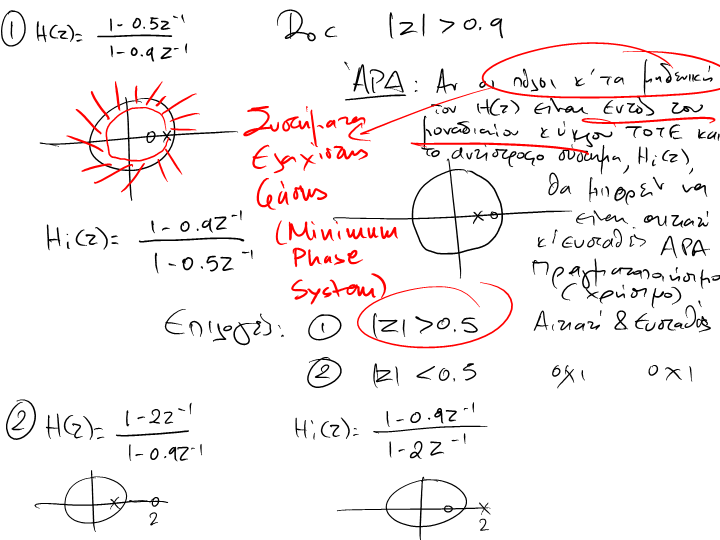 ① H(z)= 1-0.5z⁻¹ / 1-0.9z⁻¹ Roc |z|>0.9
ΑΡΑ: Αν οι πόλοι κ' τα μηδενικά
του H(z) είναι εντός του
μοναδιαίου κύκλου ΤΟΤΕ και
το αντίστροφο σύστημα, Hi(z),
θα μπορεί να
είναι αιτιατό
κ' ευσταθές ΑΡΑ
πραγματοποιήσιμο
(χρήσιμο)
Συστήματα
Ελαχίστης
Φάσης
(Minimum
Phase
System)
Hi(z)= 1-0.9z⁻¹ / 1-0.5z⁻¹
Επιλογές: ① |z|>0.5 Αιτιατό & Ευσταθές
② |z|<0.5 όχι όχι
② H(z)= 1-2z⁻¹ / 1-0.9z⁻¹ Hi(z)= 1-0.9z⁻¹ / 1-2z⁻¹
2 2